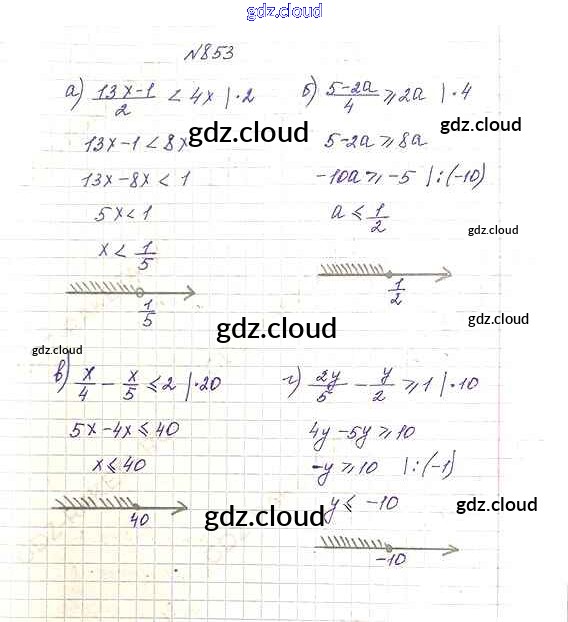 gdz.cloud
№853
а) (13x-1)/2 < 4x |·2
13x-1<8x
13x-8x < 1
5x<1
x < 1/5
1/5
б) (5-2a)/4 ⩾ 2a |·4
5-2a ⩾ 8a
-10a ⩾ -5 |:(-10)
a ⩽ 1/2
1/2
gdz.cloud
gdz.cloud
gdz.cloud
gdz.cloud
gdz.cloud
в) x/4 - x/5 ⩽ 2 |·20
5x-4x ⩽ 40
x ⩽ 40
40
г) 2y/5 - y/2 ⩾ 1 |·10
4y-5y ⩾ 10
-y ⩾ 10 |:(-1)
y ⩽ -10
-10
gdz.cloud
gdz.cloud